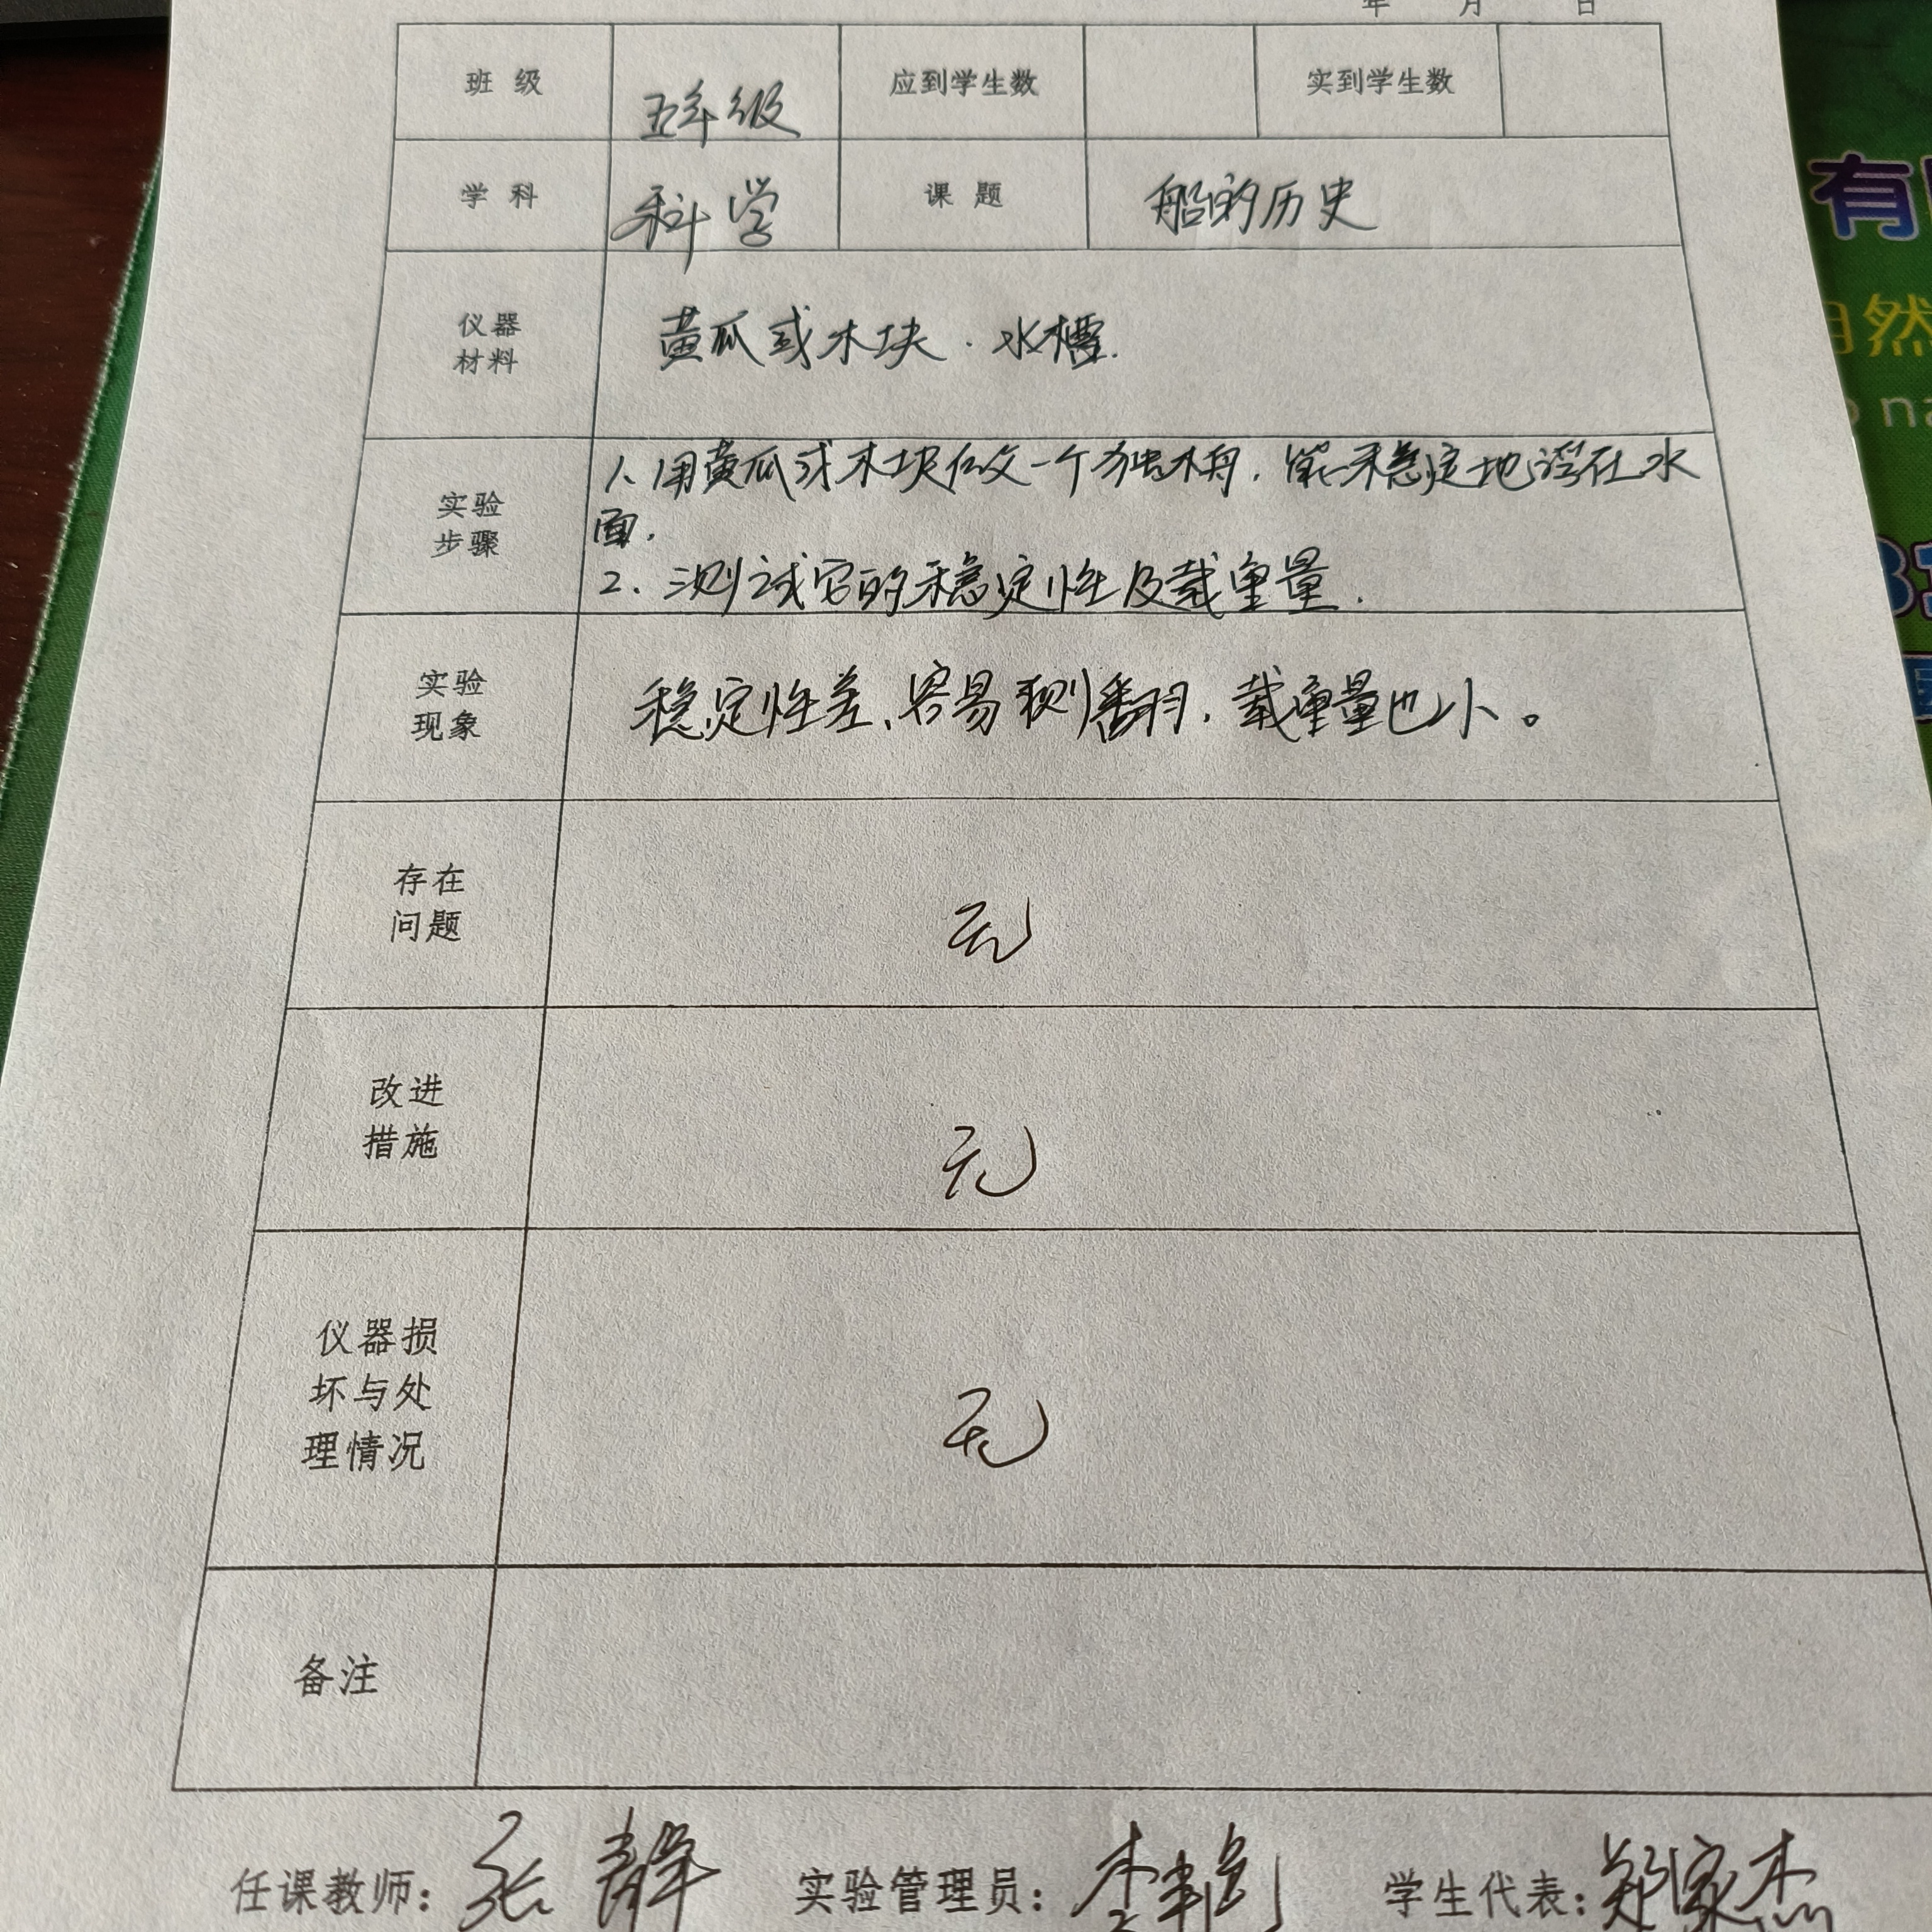 年 月 日
班 级 五年级 应到学生数 实到学生数
学 科 科学 课 题 船的历史
仪器
材料
黄瓜或木块. 水槽.
实验
步骤
1、用黄瓜或木块做一个独木舟, 能不稳定地浮在水
面.
2. 测试它的稳定性及载重量.
实验
现象
稳定性差、容易侧翻, 载重量也小。
存在
问题
无
改进
措施
无
仪器损
坏与处
理情况
无
备注
任课教师: 张静 实验管理员: 学生代表: 郑家杰
有
自然